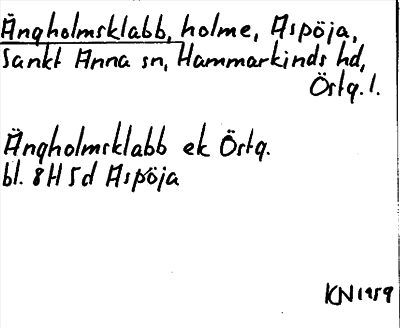 Ängholmsklabb, holme, Aspöja,
Sankt Anna sn, Hammarkinds hd,
Östg. l.
Ängholmsklabb ek Östg.
bl. 8H 5d Aspöja
KN 1959